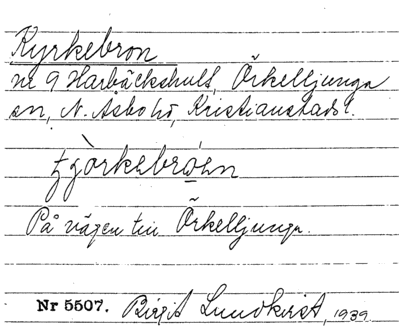 Kyrkebron
nr 9 Harbäckshult, Örkelljunga
sn, N. Åsbo hd, Kristianstads l.
På vägen till Örkelljunga.
Nr 5507. Birgit Lundkvist, 1939